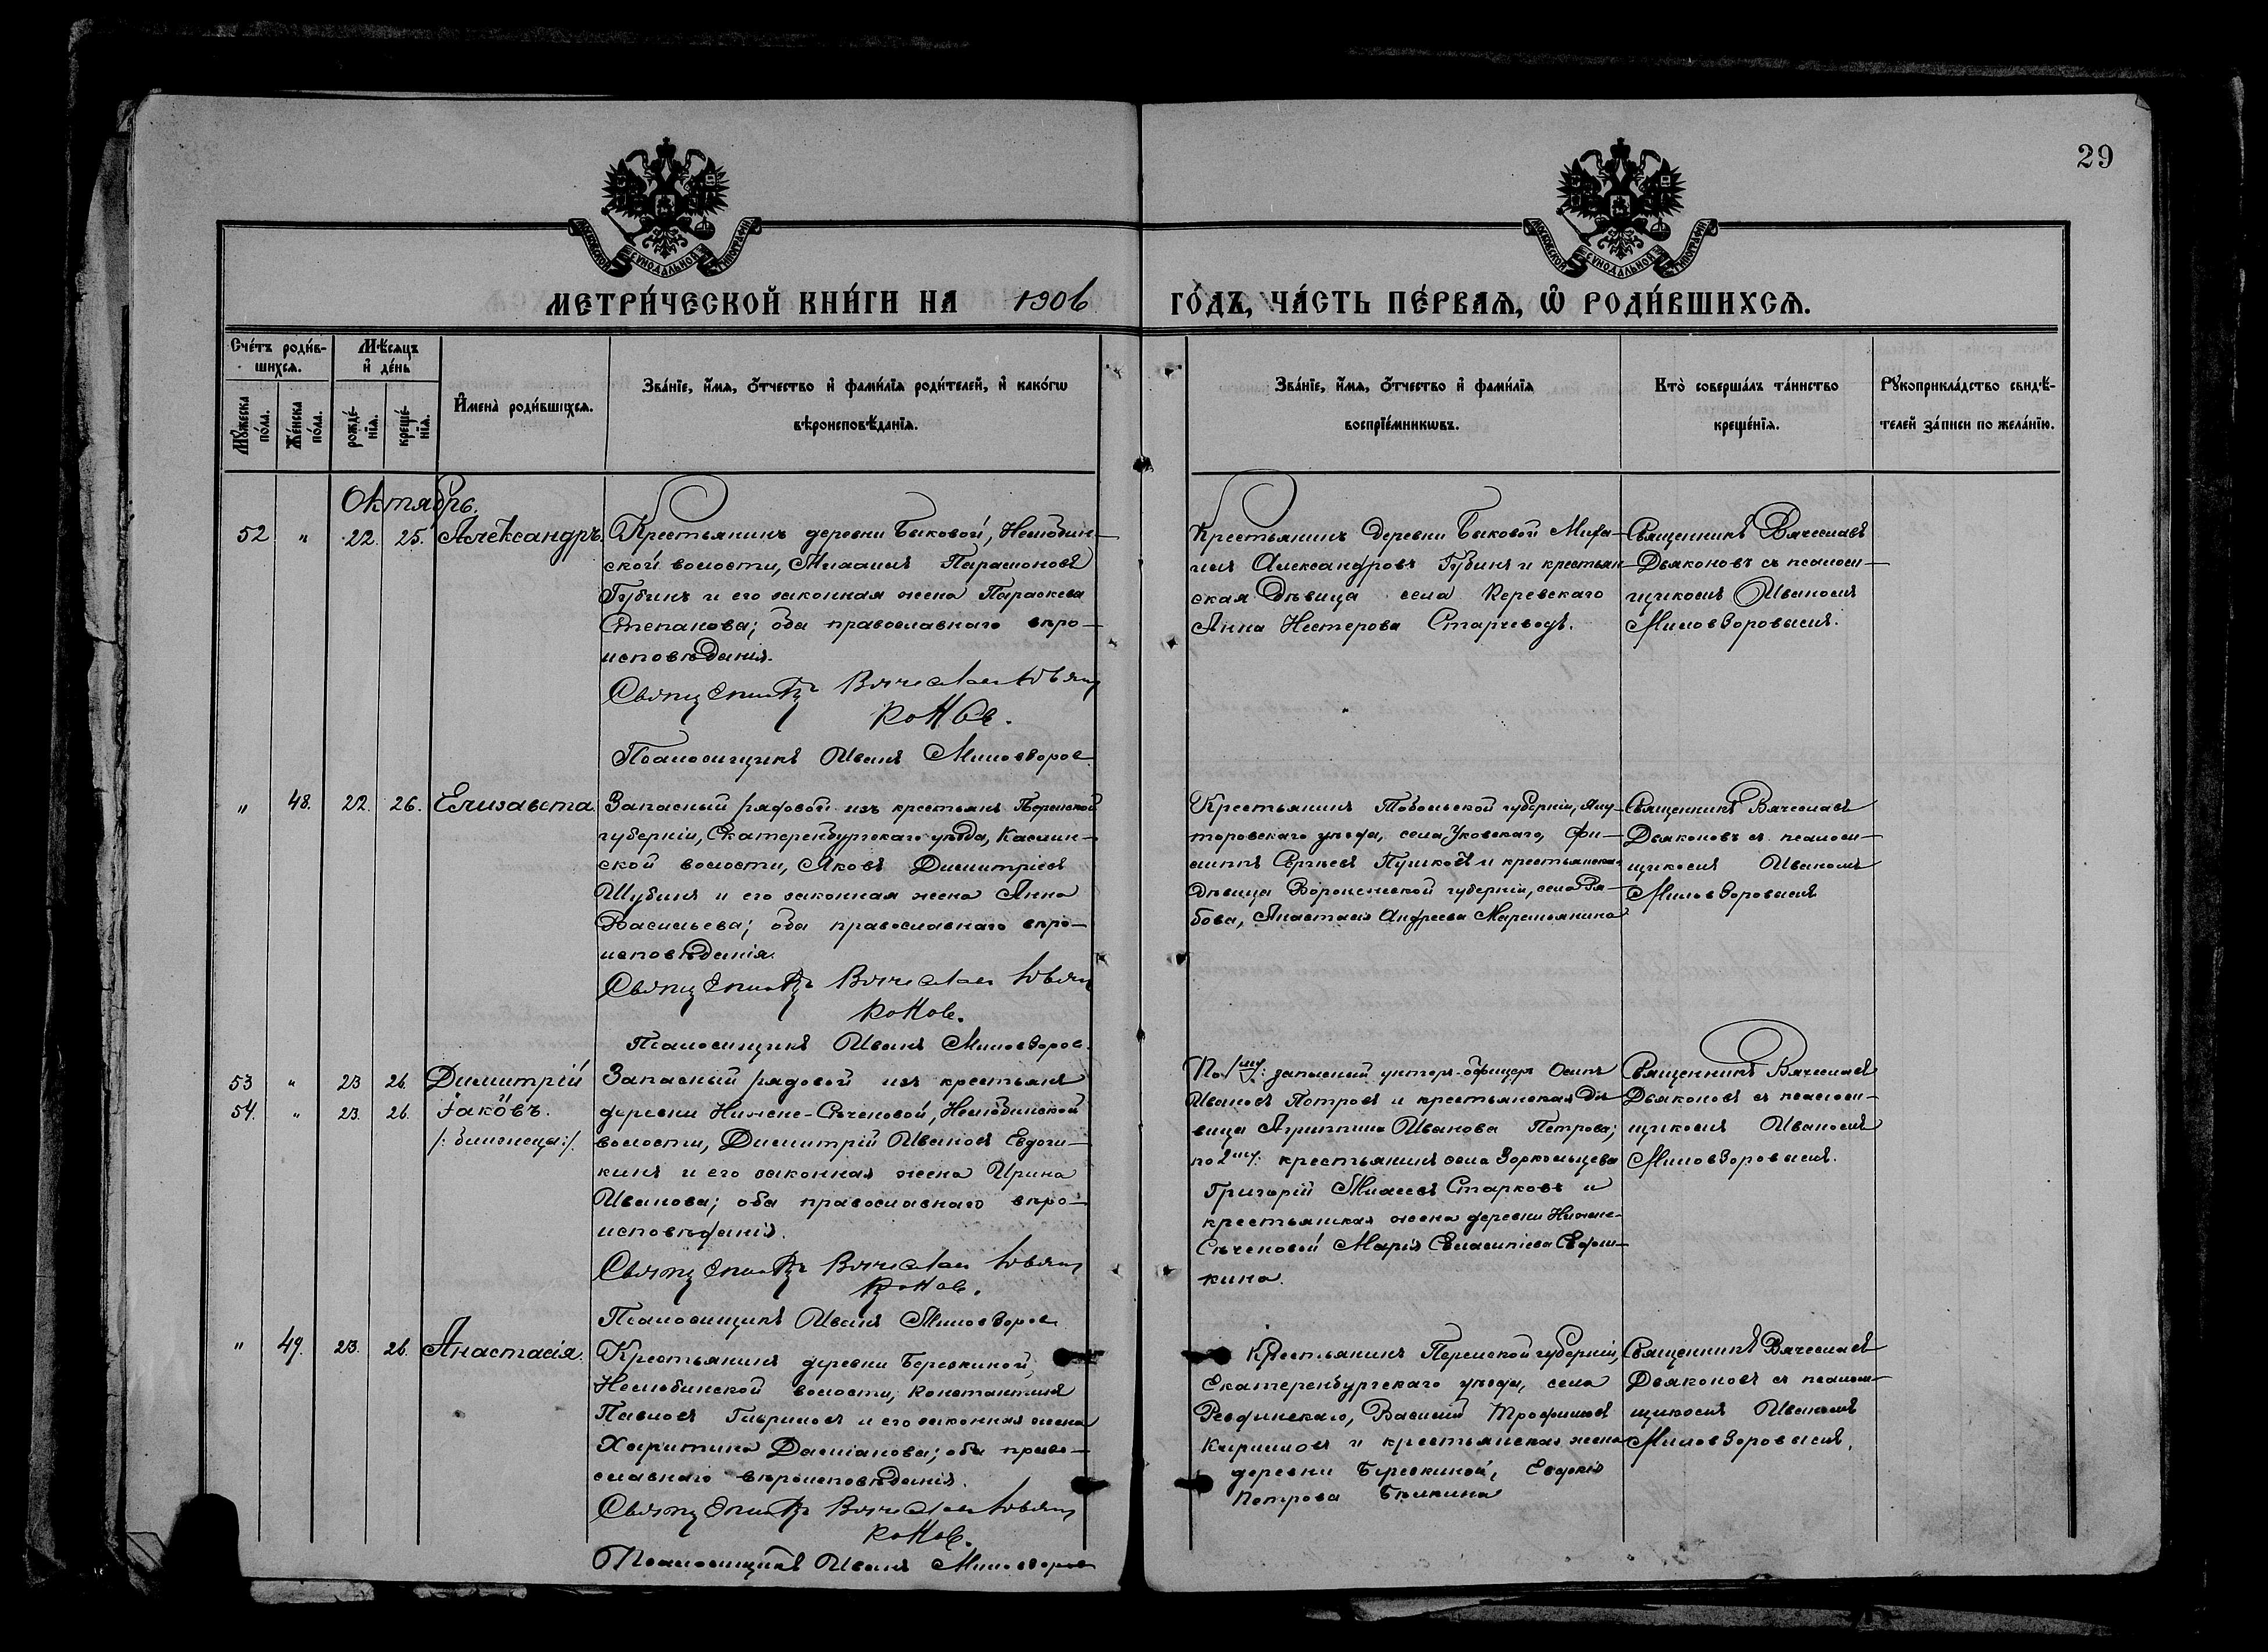 29
МОСКОВСКОЙ СѴНОДАЛЬНОЙ ТИПОГРАФІИ
МОСКОВСКОЙ СѴНОДАЛЬНОЙ ТИПОГРАФІИ
МЕТРИ́ЧЕСКОЙ КНИ́ГИ НА 1906 ГО́ДЪ, ЧА́СТЬ ПЕ́РВАѦ, Ѽ РОДИ́ВШИХСѦ.
Сче́тъ роди́в-
шихся.
Мѣ́сяцъ
и҆ де́нь
Мꙋ́жеска по́ла.
Же́нска по́ла.
рожде́-
нїѧ.
креще́-
нїѧ.
И҆мена̀ роди́вшихся.
Зва́нїе, и҆́мя, ѻ҆́тчество и҆ фами́лїя роди́телей, и҆ како́гѡ
вѣроисповѣ́данїя.
Зва́нїе, и҆́мя, ѻ҆́тчество и҆ фами́лїя
воспрїе́мникѡвъ.
Кто̀ соверша́лъ та́инство
креще́нїя.
Рꙋкоприкла́дство свидѣ́-
телей за́писи по жела́нїю.
Октябрь.
52 " 22. 25. Александръ
Крестьянинъ деревни Быковой, Нелюбин-
ской волости, Михаилъ Парамоновъ
Губинъ и его законная жена Параскева
Степанова; оба православнаго веро-
исповѣданія.
Священникъ Вячеславъ Дьяко
нов.
Псаломщикъ Иванъ Миловзоров
Крестьянинъ деревни Быковой Миха-
илъ Александровъ Губинъ и крестьян-
ская дѣвица села
Анна Нестерова
Священникъ Вячеславъ
Дьяконовъ съ псалом-
щикомъ Иваномъ
Миловзоровымъ.
" 48. 22. 26. Елизавета
Запасный рядовой изъ крестьянъ Пермской
губерніи, Екатеренбургскаго уѣзда, Каслин-
ской волости, Яковъ Димитріевъ
Шубинъ и его законная жена Анна
Васильева; оба православнаго вѣро-
исповѣданія.
Священникъ Вячеславъ Дьяко
нов.
Псаломщикъ Иванъ Миловзоров.
Крестьянинъ Тобольской губерніи, Ялу-
торовскаго уѣзда, села Уковскаго, Фи-
липпъ Сергѣевъ Пушковъ и крестьянская
дѣвица Воронежской губерніи, села Ря-
бова, Анастасія Андреева
Священникъ Вячеславъ
Дьяконовъ съ псалом-
щикомъ Иваномъ
Миловзоровымъ
53 " 23 26 Димитрій
54. " 23. 26. Іаковъ.
/: близнецы :/
Запасный рядовой изъ крестьянъ
деревни Нижне-Сѣченовой, Нелюбинской
волости, Димитрій Ивановъ Евдоки-
кинъ и его законная жена Ирина
Иванова; оба православнаго вѣро-
исповѣданія.
Священникъ Вячеславъ Дьяко
нов.
Псаломщикъ Иванъ Миловзоров
По 1му: запасный унтеръ-офицеръ Осипъ
Ивановъ Петровъ и крестьянская дѣ-
вица Агриппина Иванова Петрова;
по 2му: крестьянинъ села Зоркольцева
Григорій Старковъ и
крестьянская жена деревни Нижне-
Сѣченовой Марія
кина.
Священникъ Вячеславъ
Дьяконовъ съ псалом-
щикомъ Иваномъ
Миловзоровымъ.
" 49. 23. 26. Анастасія.
Крестьянинъ деревни Березкиной,
Нелюбинской волости, Константинъ
Павловъ Гавриловъ и его законная жена
Харитина Даміанова; оба право-
славнаго вѣроисповѣданія.
Священникъ Вячеславъ Дьяко
нов.
Псаломщикъ Иванъ Миловзоров
Крестьянинъ Пермской губерніи,
Екатеренбургскаго уѣзда, села
Ревдинскаго, Василій Трофимовъ
Кирилловъ и крестьянская жена
деревни Березкиной, Евдокія
Петрова Бѣлкина
Священникъ Вячеславъ
Дьяконовъ съ псалом-
щикомъ Иваномъ
Миловзоровымъ.